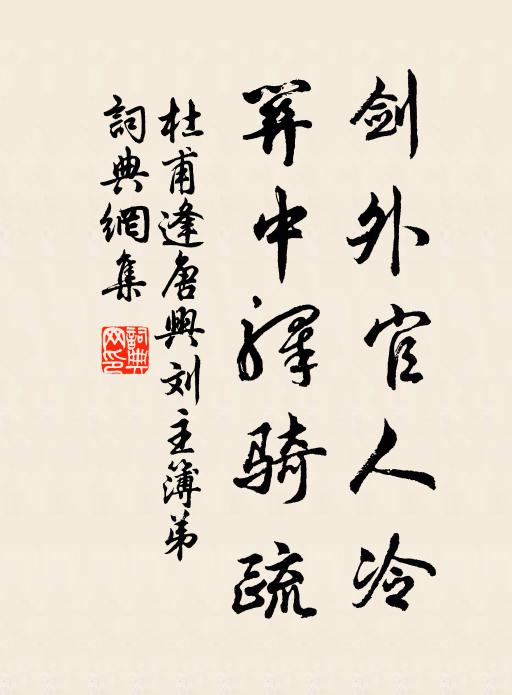 剑外官人冷
關中驛骑疏
杜甫逢唐興刘主簿弟
詞典網集
詞典网印